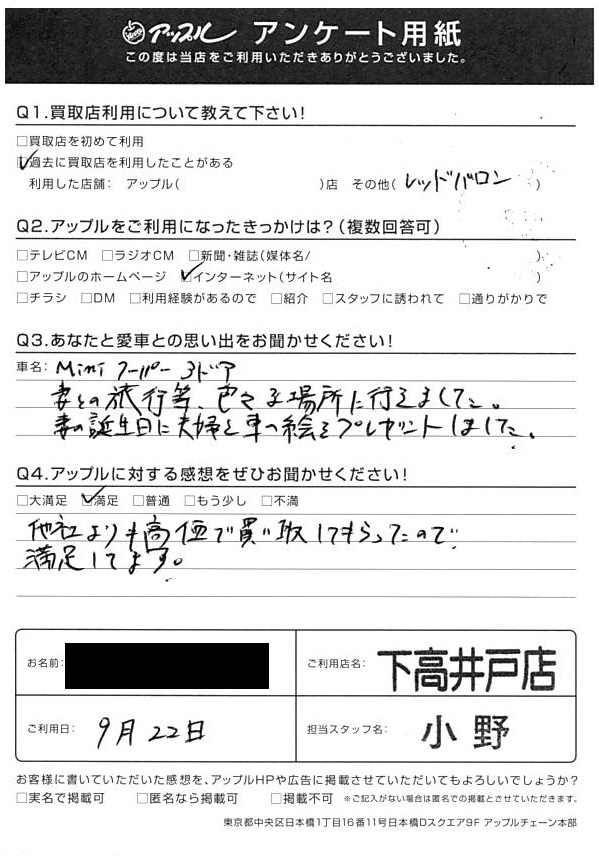 アップル アンケート用紙
この度は当店をご利用いただきありがとうございました。
Q1.買取店利用について教えて下さい!
□買取店を初めて利用
☑過去に買取店を利用したことがある
利用した店舗: アップル( )店 その他( レッドバロン )
Q2.アップルをご利用になったきっかけは?(複数回答可)
□テレビCM □ラジオCM □新聞・雑誌(媒体名/ )
□アップルのホームページ ☑インターネット(サイト名 )
□チラシ □DM □利用経験があるので □紹介 □スタッフに誘われて □通りがかりで
Q3.あなたと愛車との思い出をお聞かせください!
車名: Mini クーパー 3ドア
妻との旅行等、色々な場所に行えました。
妻の誕生日に夫婦と車の絵をプレゼントしました。
Q4.アップルに対する感想をぜひお聞かせください!
□大満足 ☑満足 □普通 □もう少し □不満
他社よりも高価で買い取してもらったので
満足してます。
お名前: ご利用店名: 下高井戸店
ご利用日: 9月22日 担当スタッフ名: 小野
お客様に書いていただいた感想を、アップルHPや広告に掲載させていただいてもよろしいでしょうか?
□実名で掲載可 □匿名なら掲載可 □掲載不可 ※ご記入がない場合は匿名での掲載とさせていただきます。
東京都中央区日本橋1丁目16番11号日本橋Dスクエア9F アップルチェーン本部